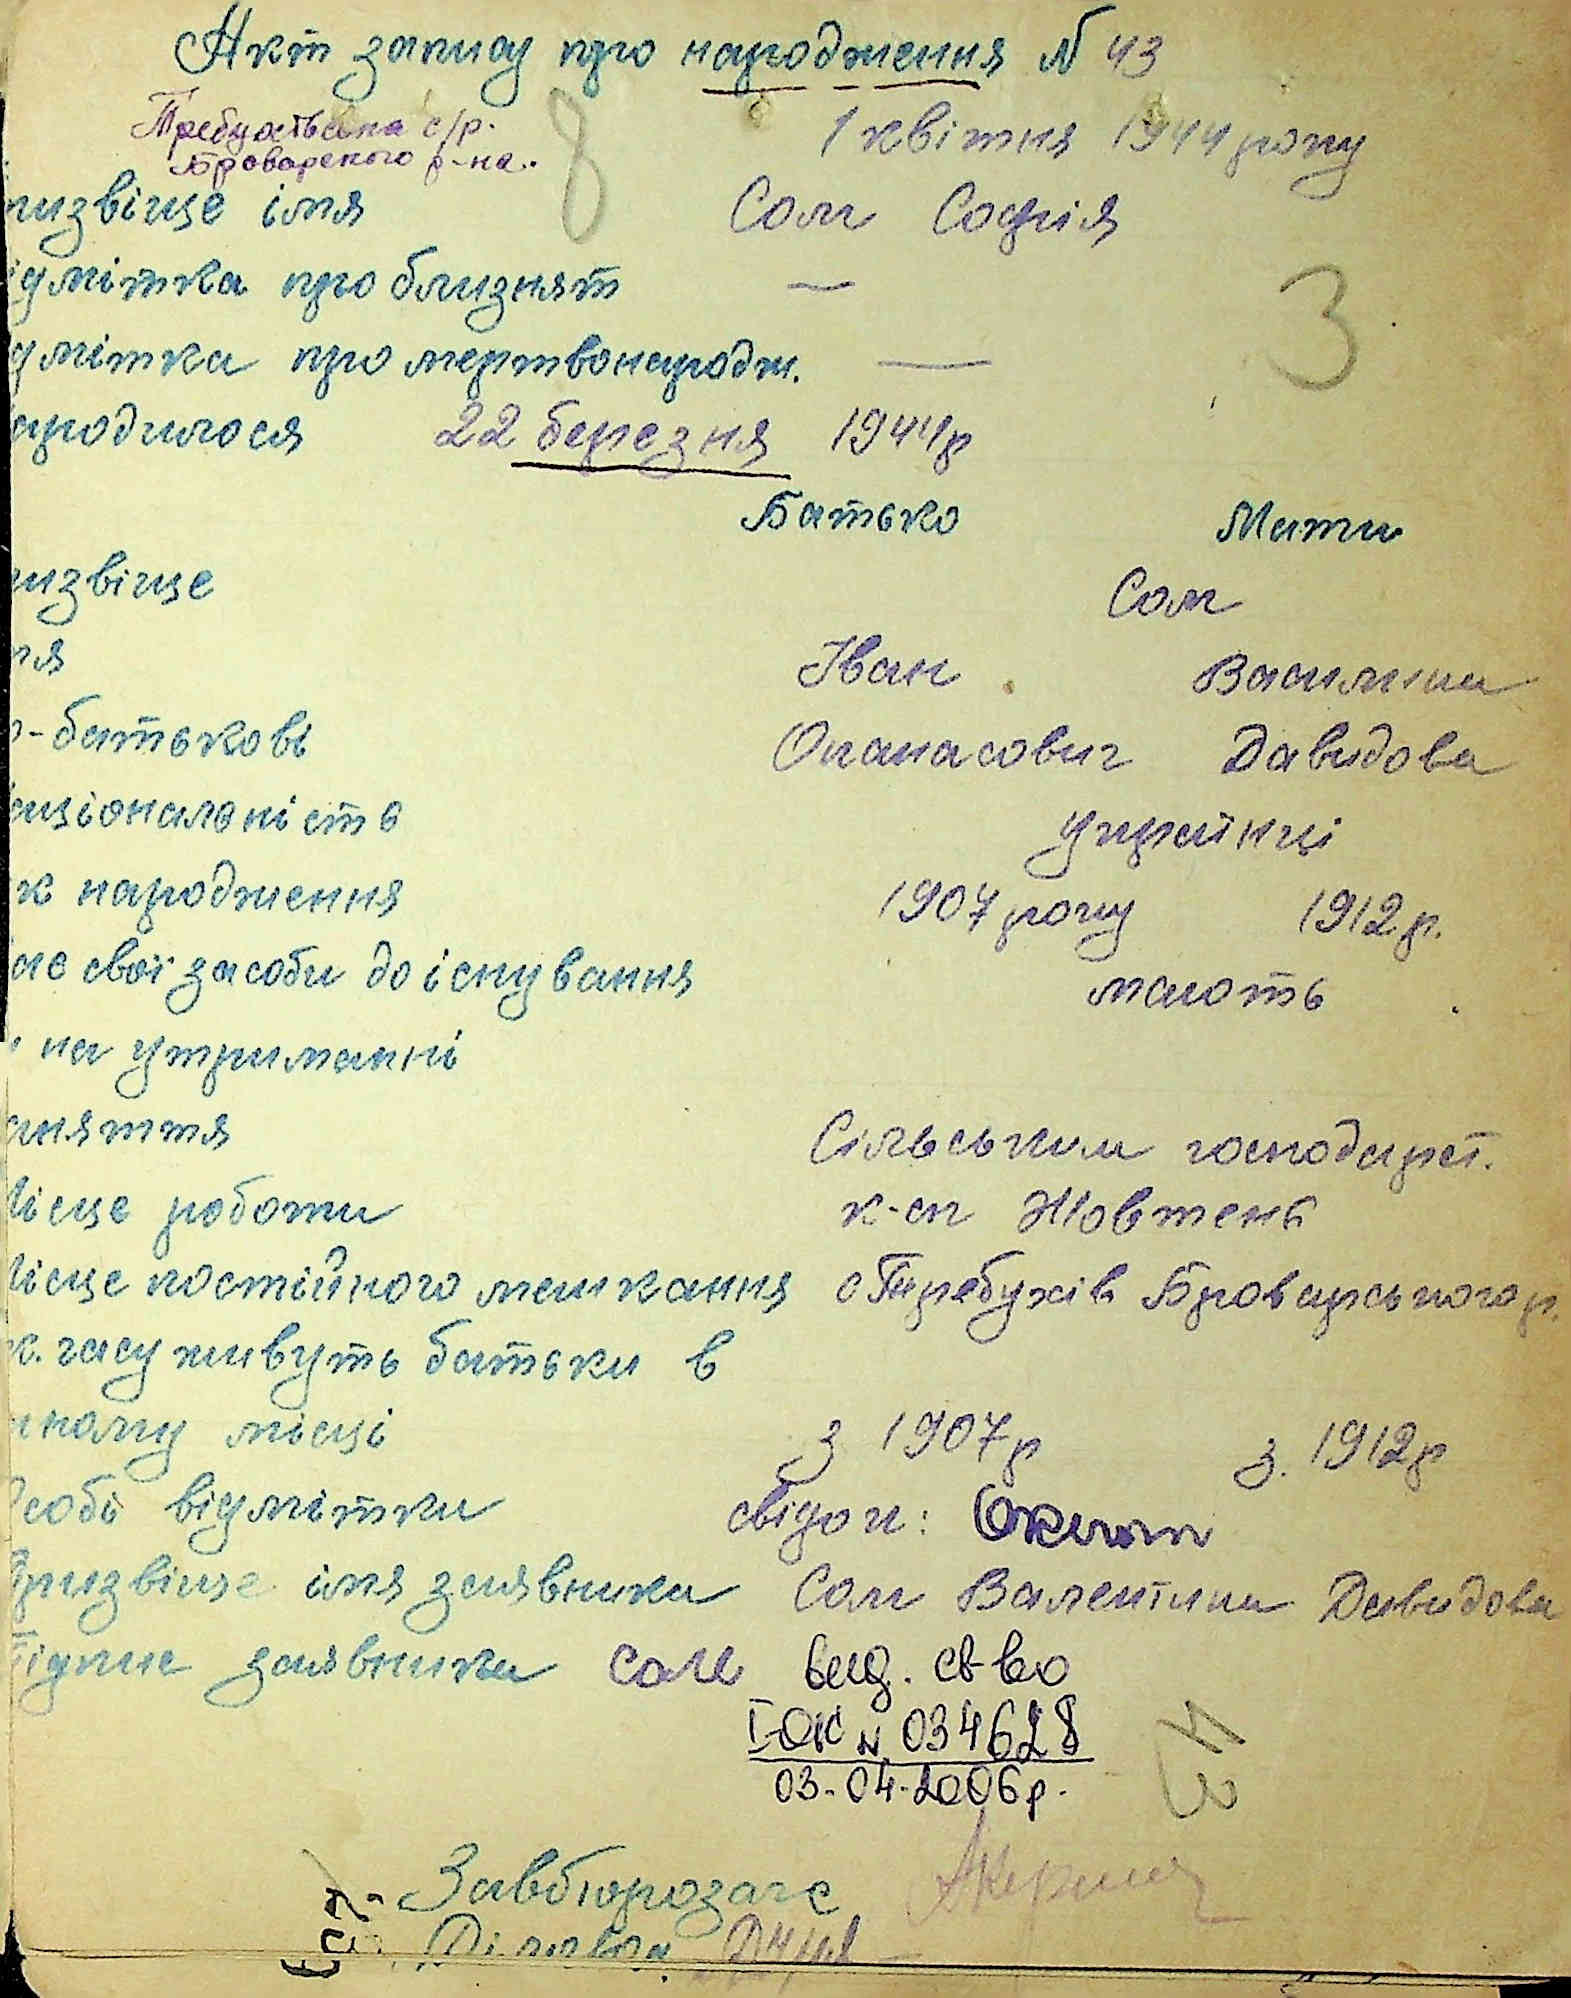 Акт запису про народження N 43
Требухівська с/р.
Броварского р-на.
8
1 квітня 1944 року
ризвіще імя Сом Софія
ідмітка про близнят —
3
дмітка про мертвонародж. —
ародилося 22 березня 1944р
Батько Мати
ризвіще Сом
мя Іван Василина
о-батькові Опанасович Давидова
аціональність українці
ік народження 1907 року 1912 р.
ає свої засоби до існування мають
и на утриманні
аняття Сільським господарст.
Місце роботи к-сп Жовтень
Місце постійного мешкання с Требухів Броварського р.
к. часу живуть батьки в
ному місці з 1907р з. 1912р
Особі відмітки свідок:
Призвіще імя заявника Сом Валентина Давидова
Підпис заявника Сом вид. св-во
І-ОК N 034628
03-04-2006р.
43
Завбюрозагс